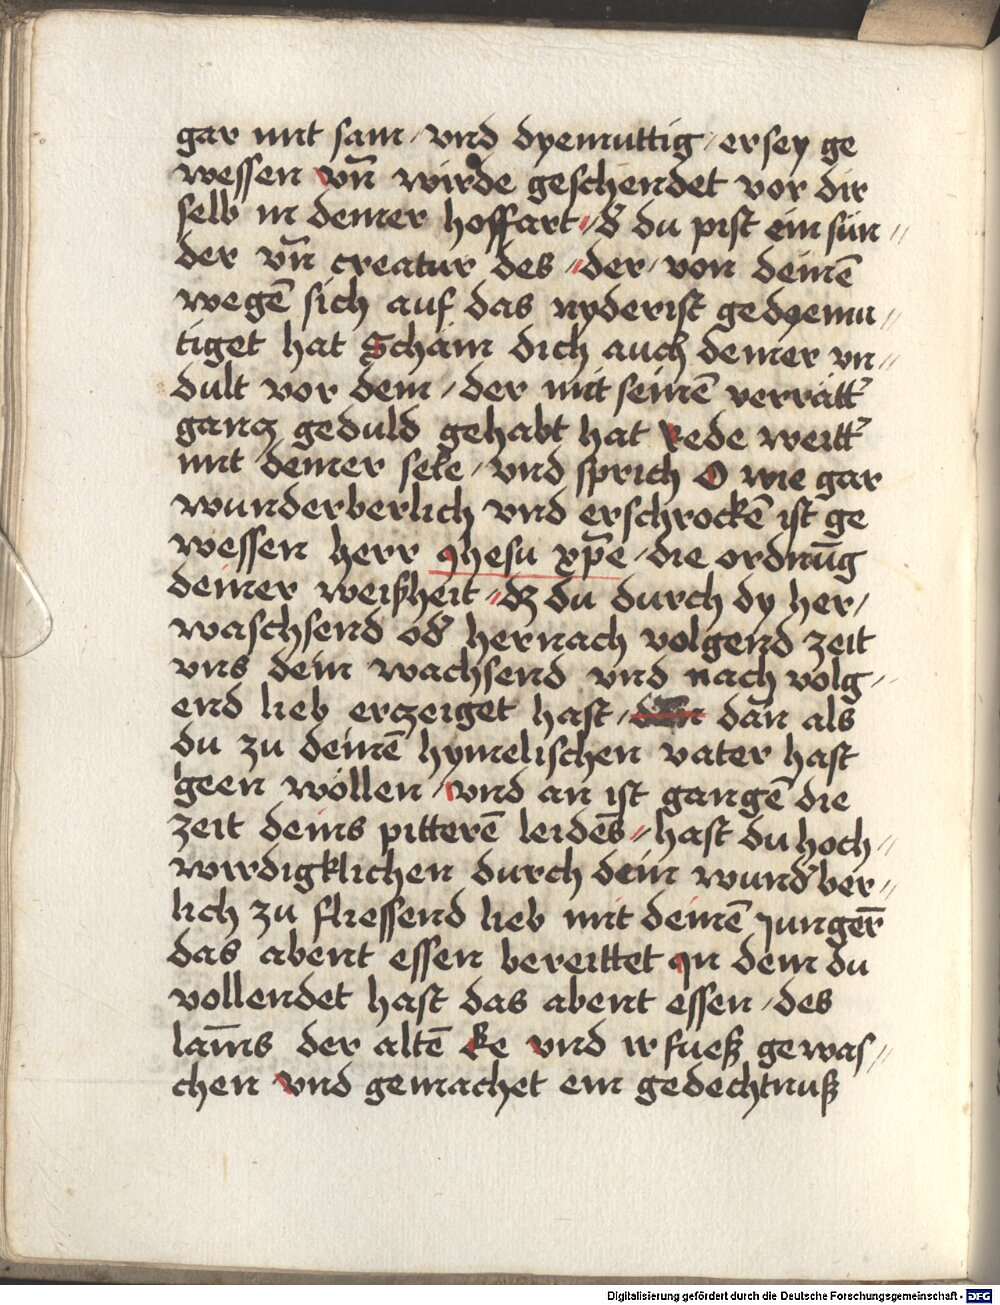 gar mit sam / vnd dyemuttig / er sey ge
wessen vn̄ wirde geschendet vor dir
selb in deiner hoffart // d̛ du pist ein sün //
der vn̄ creatur des // der / von deinē
wegē sich auf das nyderist gedyemu //
tiget hat Scham dich auch deiner vn //
dult vor dem / der mit seinē verrätt̛
gancz geduld gehabt hat Rede weitt̛
mit deiner sele / vnd sprich O wie gar
wunderberlich vnd erschrockē ist ge
wessen herr Jhesu xp̄e / die ordnūg
deiner weißheit // dz du durch dy her /
waschsend od̛ hernach volgend zeit
vns dein wachsend vnd nach volg //
end lieb erczeiget hast / dan als
du zu deinē hymelischen vater hast
geen wöllen / vnd an ist gangē die
zeit deins pitterē leidēs // hast du hoch //
wirdigklichen durch dein wund̛ber //
lich zu fliessend lieb mit deinē Junger̄
das abent essen bereittet Jn dem du
vollendet hast das abent essen / des
lam̄s der altē Ee vnd ir fueß gewas //
chen vnd gemachet ein gedechtnuß
Digitalisierung gefördert durch die Deutsche Forschungsgemeinschaft - DFG